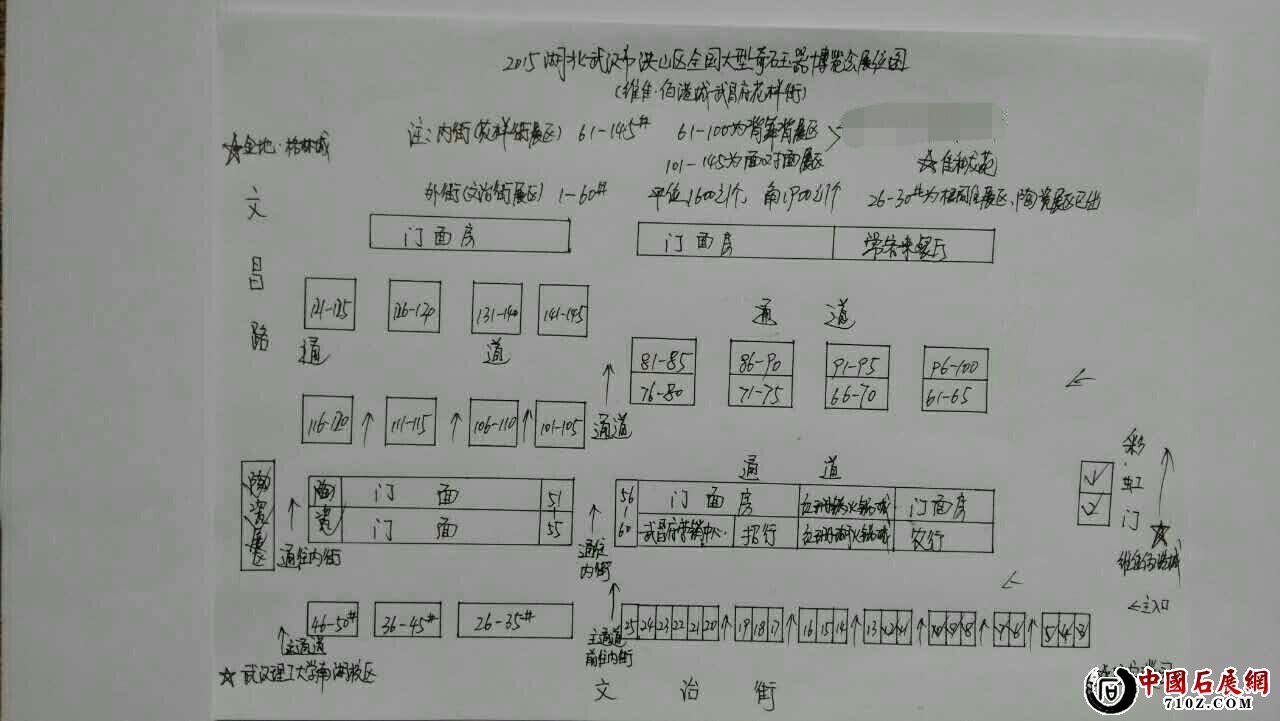 2015湖北武汉市洪山区全国大型奇石玉器博览会展位图
(维佳·佰港城武昌府花样街)
注:内街(花样街展区) 61-145# 61-100为背靠背展区
101-145为面对面展区
☆金地·格林城
☆佳和龙苑
外街(文治街展区) 1-60# 平位1600/个, 角1900/个 26-30#为 展区,陶瓷展区已出
文昌路
门面房
门面房
常客来餐厅
121-125
126-130
131-140
141-145
通道
通道
81-85
86-90
91-95
96-100
76-80
71-75
66-70
61-65
116-120
111-115
106-110
101-105
通道
通道
彩虹门
陶瓷展区
陶瓷
门面
51
门面
55
56
60
门面房
门面房
武昌府营销中心
招行
农行
通往内街
通往内街
☆维佳佰港城
←主入口
46-50#
36-45#
26-35#
25 24 23 22 21 20 19 18 17 16 15 14 13 12 11 10 9 8 7 6 5 4 3
主通道
主通道
前往内街
☆武汉理工大学南湖校区
文治街
中國石展網
710Z.COM